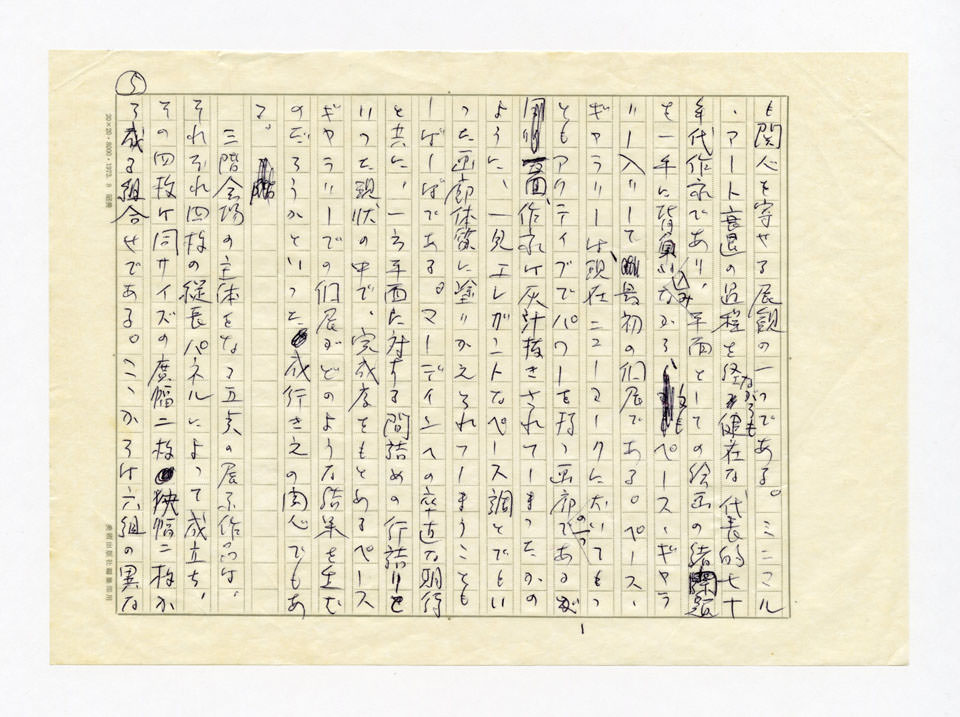 ⑤
も関心を寄せる展観の一つである。ミニマル
・アート衰退の過程を経ながらも健在な代表的七十
年代作家であり、平面としての絵画の諸問題
も一手に背負い込みながら、ペース・ギャラ
リー入りして最初の個展である。ペース・
ギャラリーは、現在ニューヨークにおいてもっ
ともアクティブでパワーを持つ画廊の一つであるが
作家は灰汁抜きされてしまったかの
ように、一見エレガントなペース調とでもい
った画廊体質に塗りかえられてしまうことも
しばしばである。マーディンへの卒直な期待
と共に、一方平面に対する間詰めの行詰りと
いった現状の中で、完成度をもとめるペース
ギャラリーでの個展がどのような結果を生む
のだろうかといった成行きえの関心でもあ
る。
三階会場の主体をなる五点の展示作品は、
それぞれ四枚の縦長パネルによって成立ち、
その四枚は同サイズの広幅二枚狭幅二枚か
ら成る組合せである。ここからは六組の異な
20×20・8000・1973. 9
美術出版社編集部用